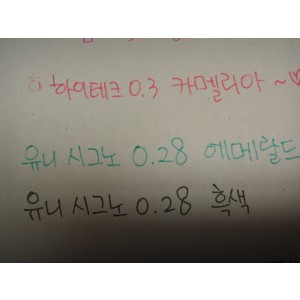 하이테크 0.3 카멜리아 ~♡
유니 시그노 0.28 에메랄드
유니 시그노 0.28 흑색